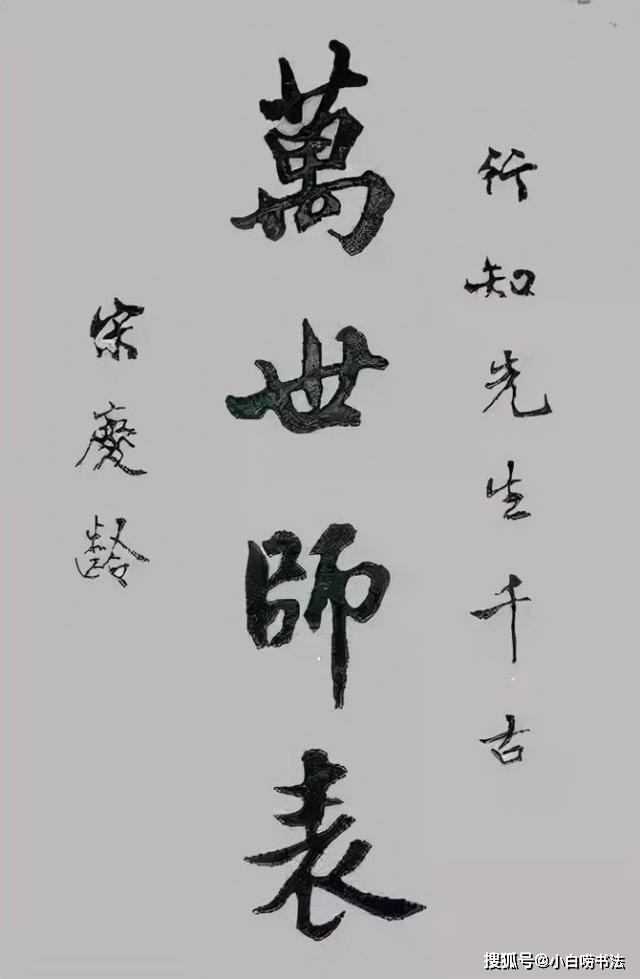 行知先生千古
萬世師表
宋慶齡
搜狐号@小白唠书法